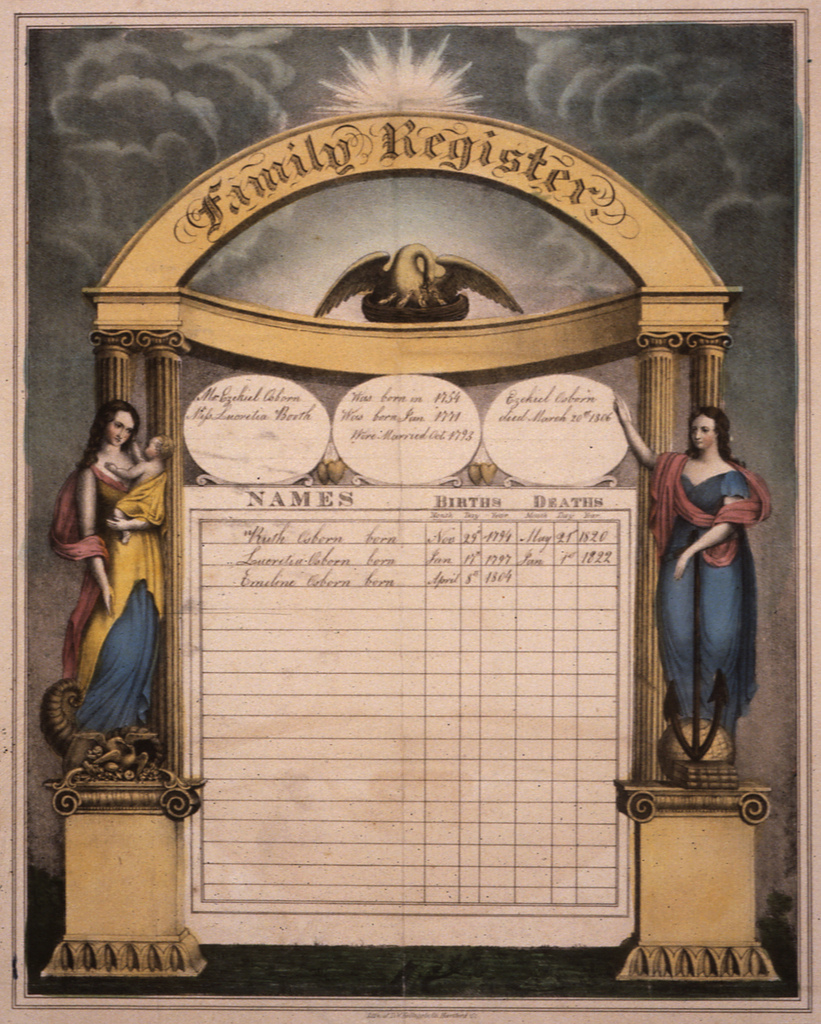 Family Register.
Mr Ezekiel Osborn
Miss Lucretia Booth
Was born in 1754
Was born Jan 1771
Were Married Oct 1793
Ezekiel Osborn
died March 20th 1806
NAMES BIRTHS DEATHS
Month Day Year Month Day Year
Ruth Osborn born Nov 25th 1794 May 21 1820
Lucretia Osborn born Jan 17th 1797 Jan 1st 1822
Emeline Osborn born April 8th 1804
Lith. of D.W. Kellogg & Co. Hartford Ct.